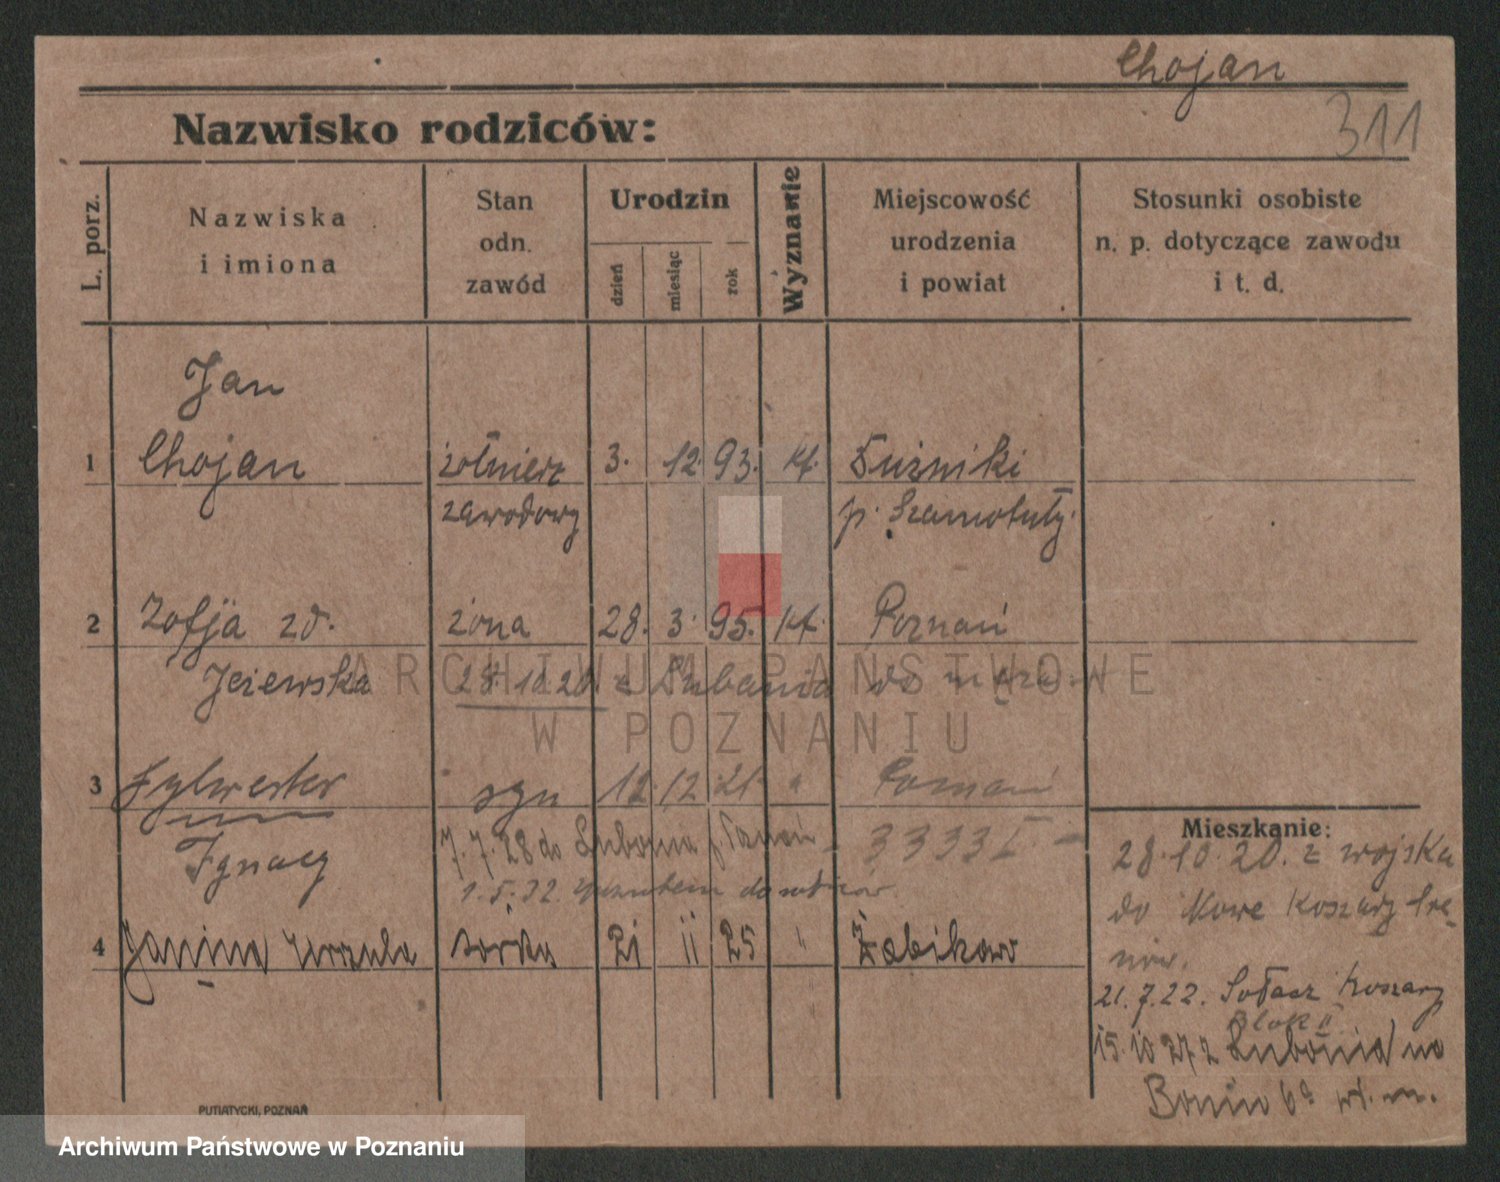 Chojan
311
Nazwisko rodziców:
L. porz.
Nazwiska
i imiona
Stan
odn.
zawód
Urodzin
dzień
miesiąc
rok
Wyznanie
Miejscowość
urodzenia
i powiat
Stosunki osobiste
n. p. dotyczące zawodu
i t. d.
Jan
1 Chojan żołnierz 3. 12. 93. kt.
zawodowy p. Szamotuły.
2 Zofja zd. żona 28. 3. 95. kt. Poznań
Jeżewska 28.10.20. z do męża
3 Sylwester syn 12. 12 21 " Poznań
Ignacy 7.7.28 do Lubonia p. Poznań 3333 I. -
1.5.32. do rodziców
4 Janina Urszula córka 21 II 25 " Żabikowo
Mieszkanie:
28.10.20. z wojska
do Nowe Koszary Tre-
nów.
21.7.22. Sołacz Koszary
Blok II
15.10 27 z Lubonia na
Bonin 6a
PUTIATYCKI, POZNAŃ
ARCHIWUM PAŃSTWOWE
W POZNANIU
Archiwum Państwowe w Poznaniu